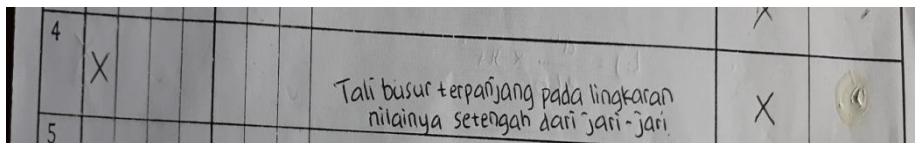 4
X
Tali busur terpanjang pada lingkaran
nilainya setengah dari jari-jari.
X
X
5